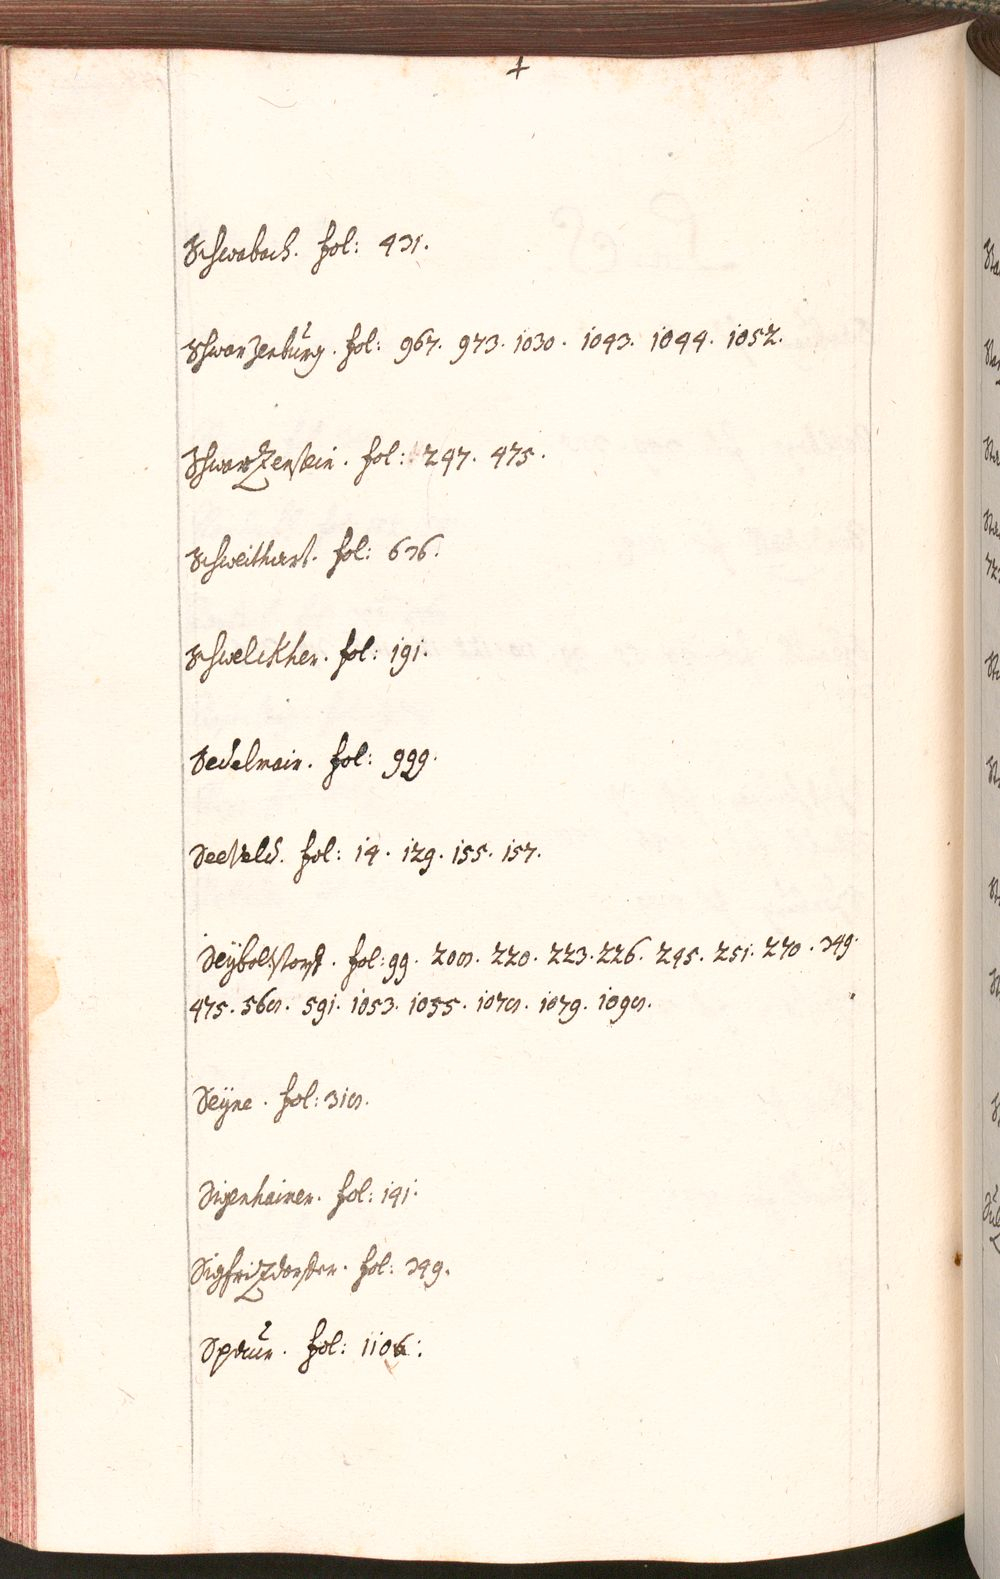 Schwabach. fol: 431.
Schwarzenburg. fol: 967. 973. 1030. 1043. 1044. 1052.
Schwartzenstein. fol: 247. 475.
Schweithart. fol: 636.
Schwelckher. fol: 191.
Sedelmair. fol: 999.
Seeveld. fol: 14. 129. 155. 157.
Seÿbolstorf. fol: 99. 208. 220. 223. 226. 245. 251. 270. 349.
475. 568. 591. 1053. 1055. 1078. 1079. 1098.
Seÿne. fol: 318.
Sigenhaimer. fol: 141.
Sigfritzdorffer. fol: 349.
Spaur. fol: 1106.